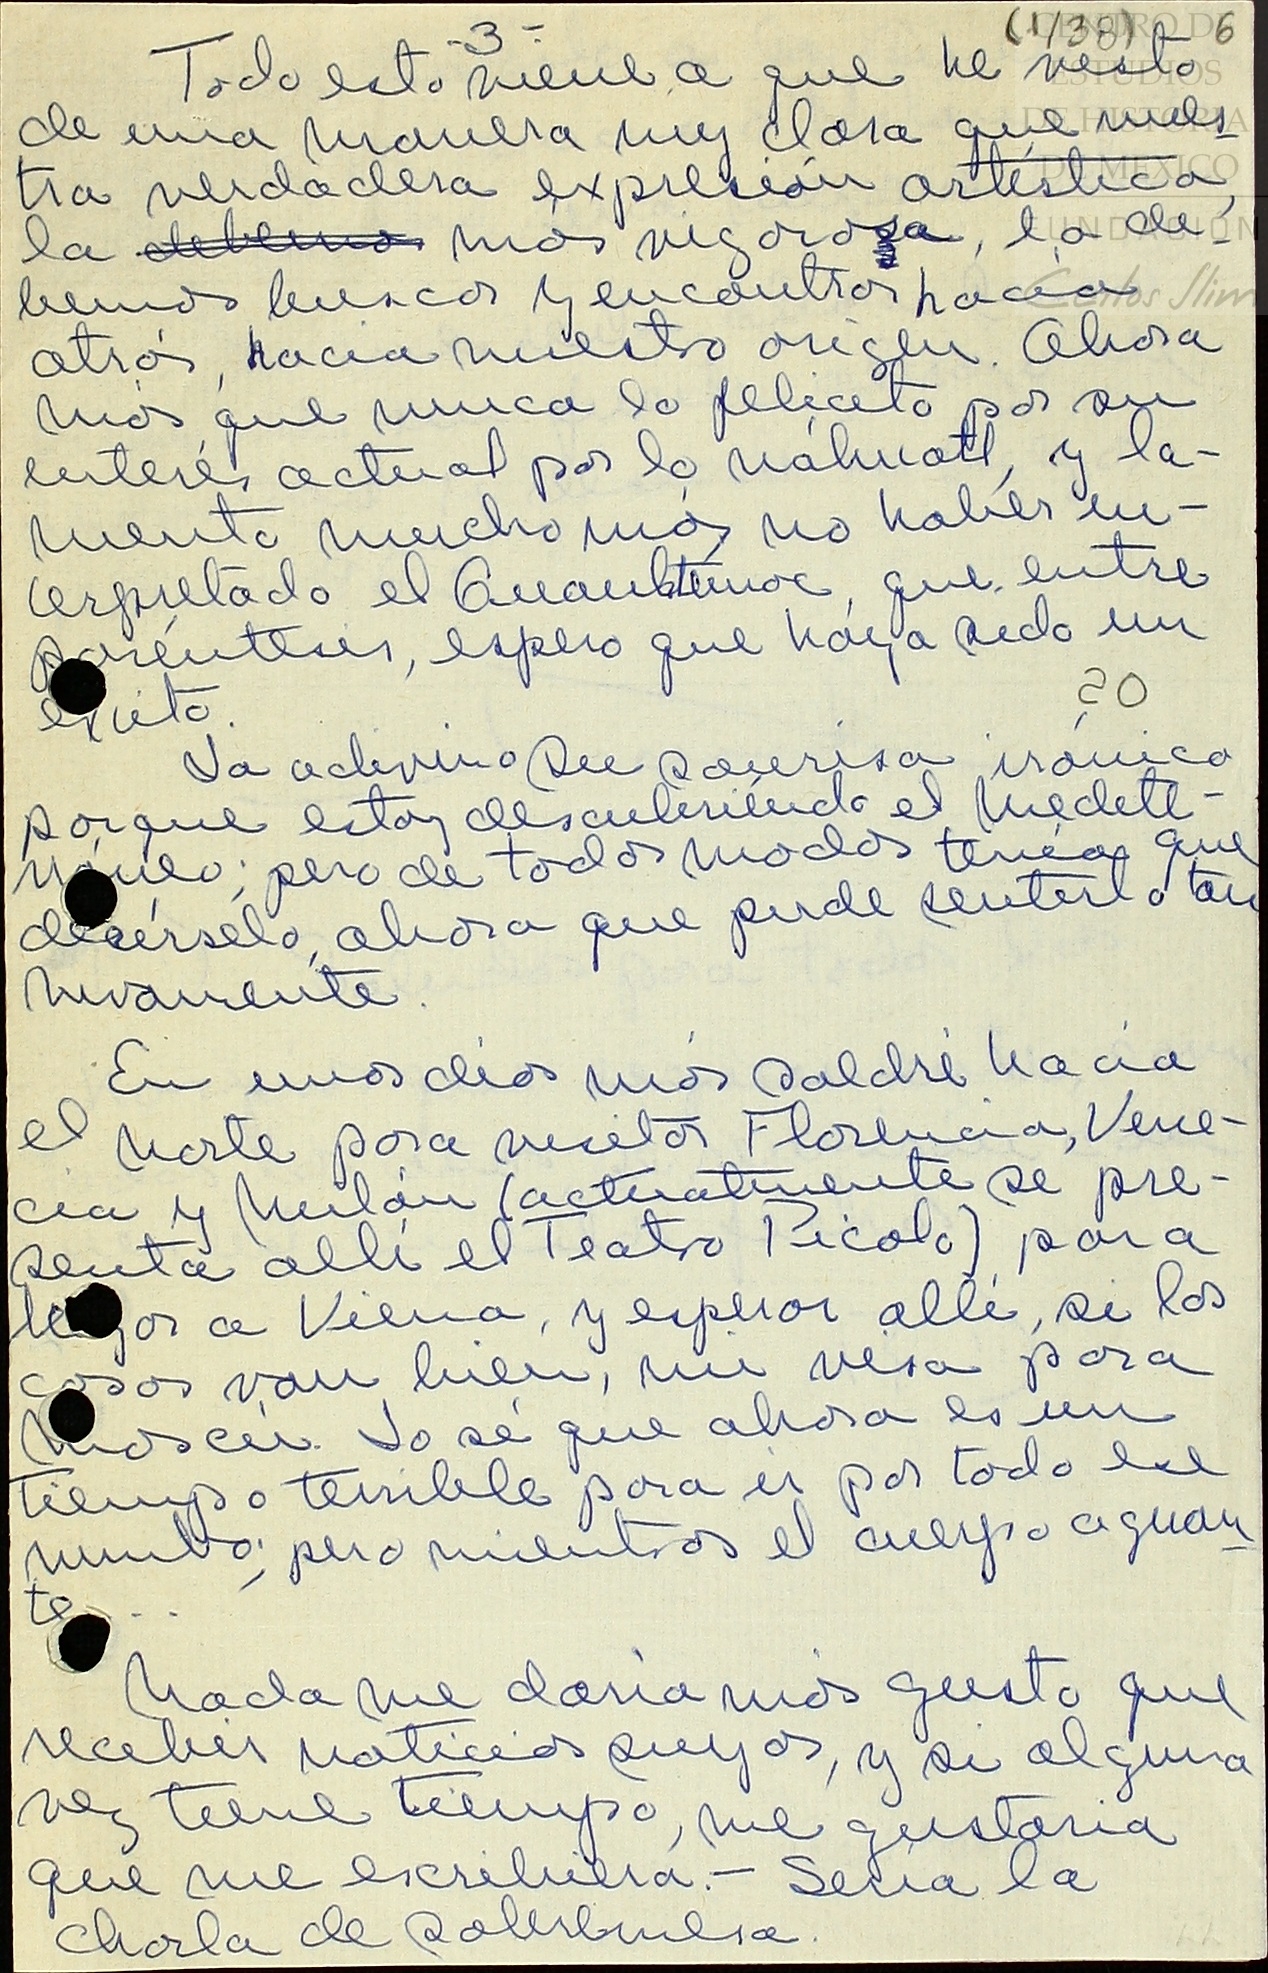 -3-
(1/38) 6
CENTRO DE
ESTUDIOS
DE HISTORIA
DE MEXICO
FUNDACIÓN
Carlos Slim
Todo esto viene a que he visto
de una manera muy clara que nues-
tra verdadera expresión artística,
la debemos más vigorosa, la de-
bemos buscar y encontrar hacia
atrás, hacia nuestro origen. Ahora
más que nunca lo felicito por su
interés actual por lo náhuatl, y la-
mento mucho más no haber in-
terpretado el Cuauhtémoc, que entre
paréntesis, espero que haya sido un
éxito.
20
Ya adivino su sonrisa irónica
porque estoy descubriendo el Medite-
rráneo; pero de todos modos tenía que
decírselo, ahora que pude sentirlo tan
vivamente.
En unos días más saldré hacia
el norte para visitar Florencia, Vene-
cia y Milán (actualmente se pre-
senta allí el Teatro Picolo) para
llegar a Viena, y esperar allí, si las
cosas van bien, mi visa para
Moscú. Yo sé que ahora es un
tiempo terrible para ir por todo ese
rumbo; pero mientras el cuerpo aguan-
te...
Nada me daría más gusto que
recibir noticias suyas, y si alguna
vez tiene tiempo, me gustaría
que me escribiera.- Sería la
charla de sobremesa.